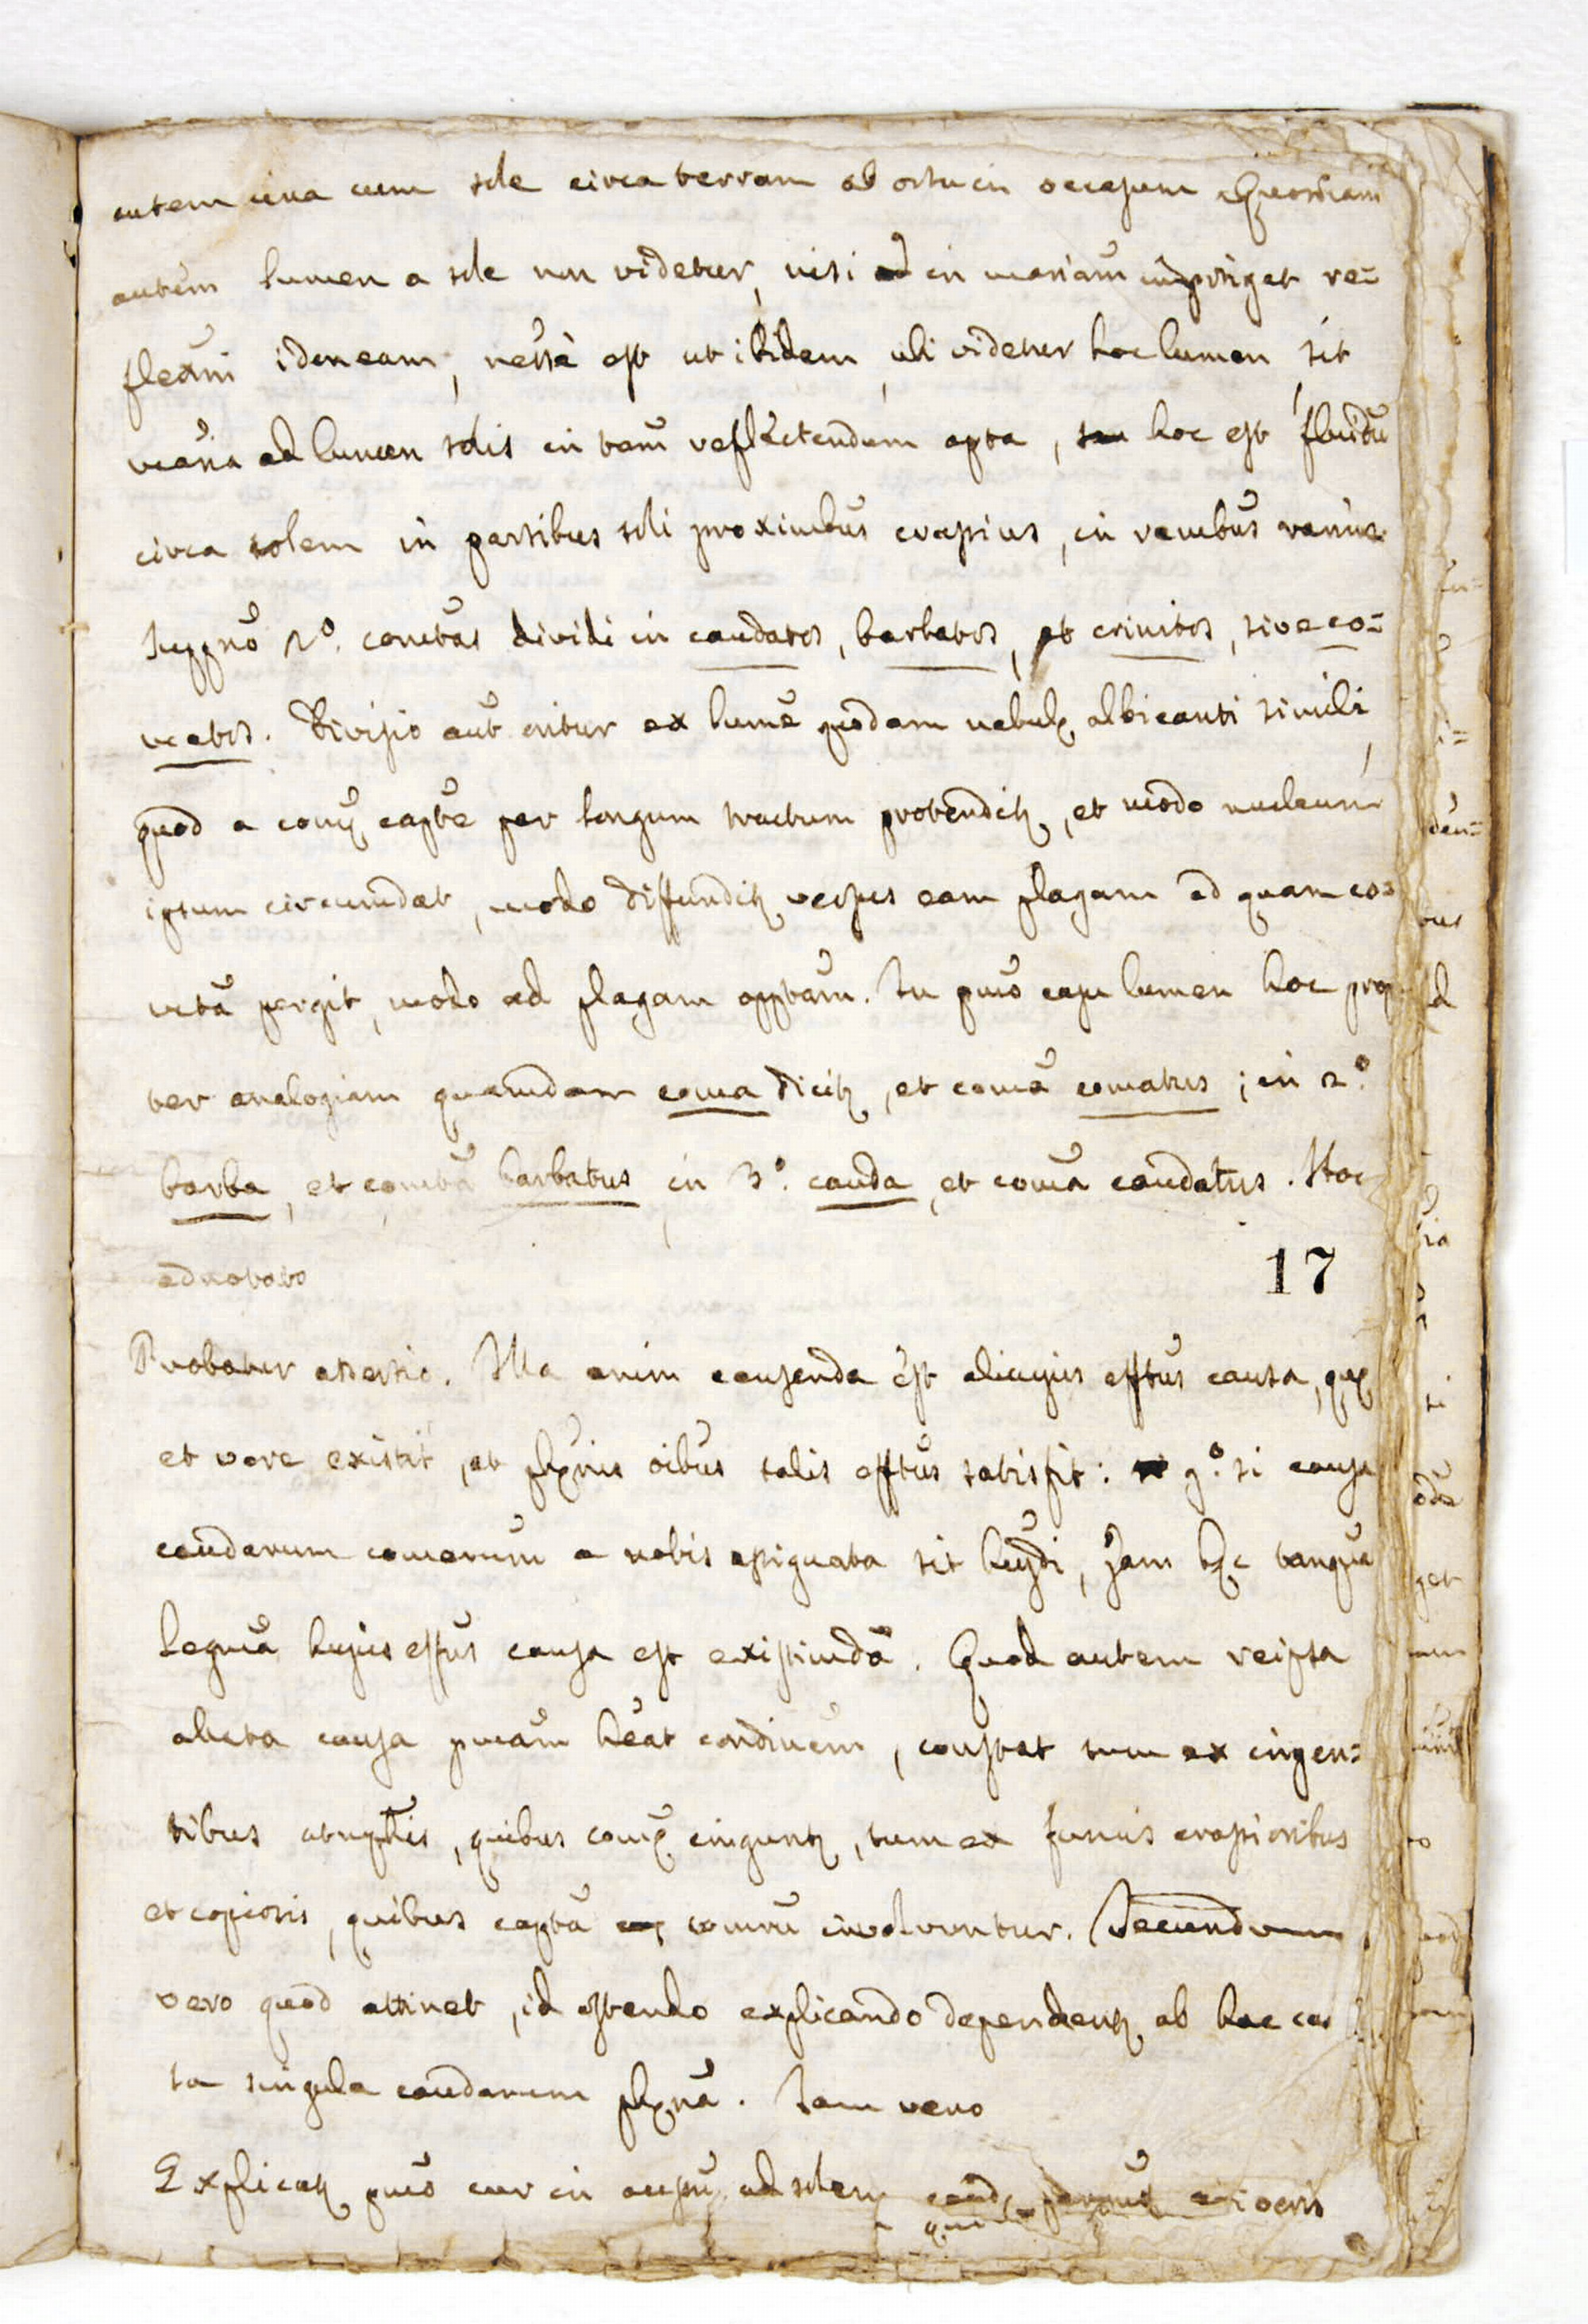 autem una cum sole circa terram ab ortu in occasum
autem lumen a sole non videtur, nisi in mariam impingat re=
flexni idoneam, nesse est ut ibidem, ubi videtur hoc lumen, sit
maria ad lumen solis in tem reflectendum apta, hoc est fluidū
circa solem in partibus soli proximibus crassius, in rembus rarius
Suppno 2º. cometas dividi in caudatos, barbatos, et crinitos, sive co=
matos. Divisio aut oritur ex lume quodam nebulę albicanti simili,
quod a comę capte per longum tractum protenditę, et modo nucleum
ipsum circumdat, modo diffunditę versus eam plagam ad quam co=
meta pergit, modo ad plagam opptam. In pmo casu lumen hoc prop
ter analogiam quamdam coma dicitę, et comā comatus; in 2º
barba, et cometā barbatus in 3º. cauda, et comā caudatus. Hoc
adnotato
17
Probatur assertio. Illa enim censenda est alicujus efftus causa, quę
et vere existit, et phęnis oibus talis efftus satisfit: gº. si causa
caudarum comarum a nobis assignata sit hujdi, jam hęc tanquā
legmā hujus efftus causa est existimdā. Quod autem reipsa
allata causa pmam heat condinem, constat tum ex ingen=
tibus atmphis, quibus comę cinguntę, tum ex fumis crassioribus
et copiosis, quibus captā comrū involvuntur. Secundum
vero quod attinet, id ostendo explicando dependenę ab hac cau
sa singula caudarum phęnā. Iam vero
Explicatę pmo cur in accssu ad solem